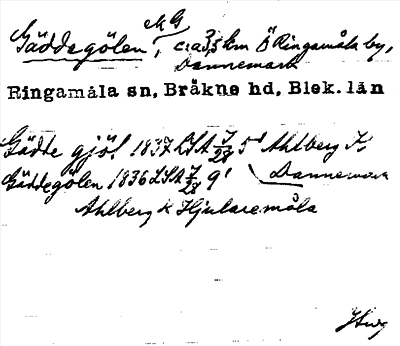 MG
Gäddegölen, c:a 3,5 km Ö Ringamåla by,
Dannemark
Ringamåla sn, Bräkne hd, Blek. län
Gädde gjöl 1837 LSA 7/28 5' Ahlberg K
Gäddegölen 1836 LSA 7/28 9' Dannemark
Ahlberg K Hjularemåla